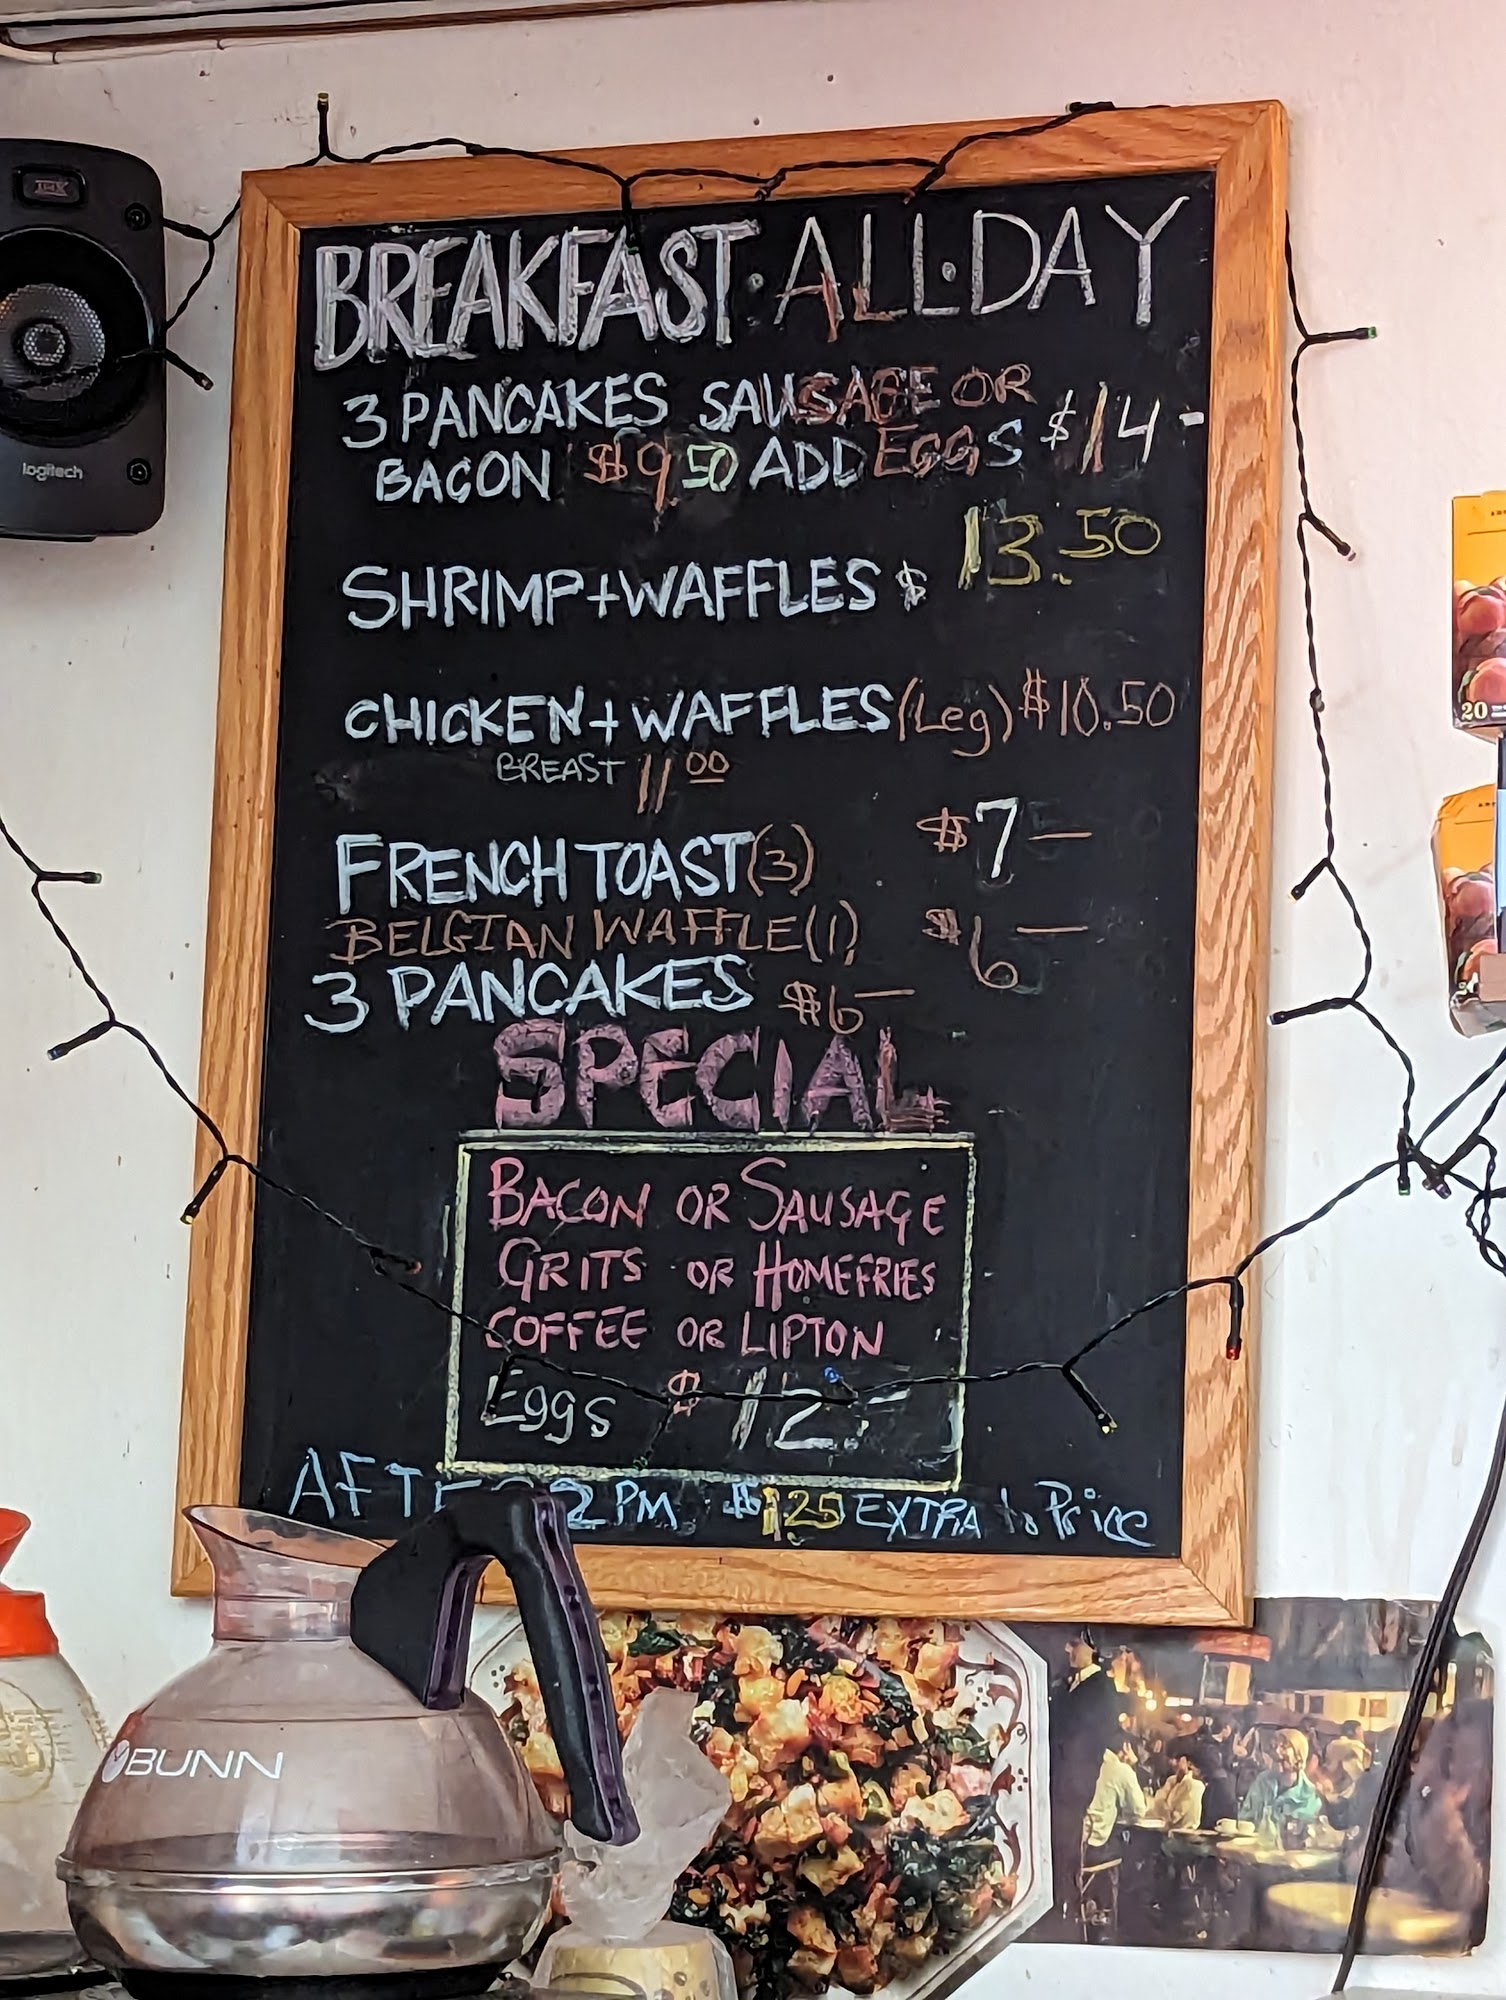 BREAKFAST · ALL · DAY
3 PANCAKES SAUSAGE OR
BACON $9.50 ADD EGGS $14-
SHRIMP + WAFFLES $ 13.50
CHICKEN + WAFFLES (Leg) $10.50
BREAST 11 00
FRENCH TOAST (3) $7—
BELGIAN WAFFLE (1) $6—
3 PANCAKES $6—
SPECIAL
BACON OR SAUSAGE
GRITS OR HOMEFRIES
COFFEE OR LIPTON
Eggs $12.-
2 PM $1.25 EXTRA to Price
logitech
BUNN
20